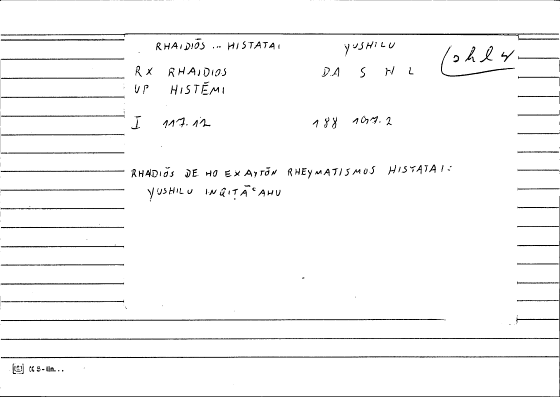 RHAIDIŌS ... HISTATAI YUSHILU
RX RHAIDIOS DA S H L
UP HISTĒMI
I 117.12 188 147.2
RHAIDIŌS DE HO EX AYTŌN RHEYMATISMOS HISTATAI:
YUSHILU INQIṬĀʿAHU